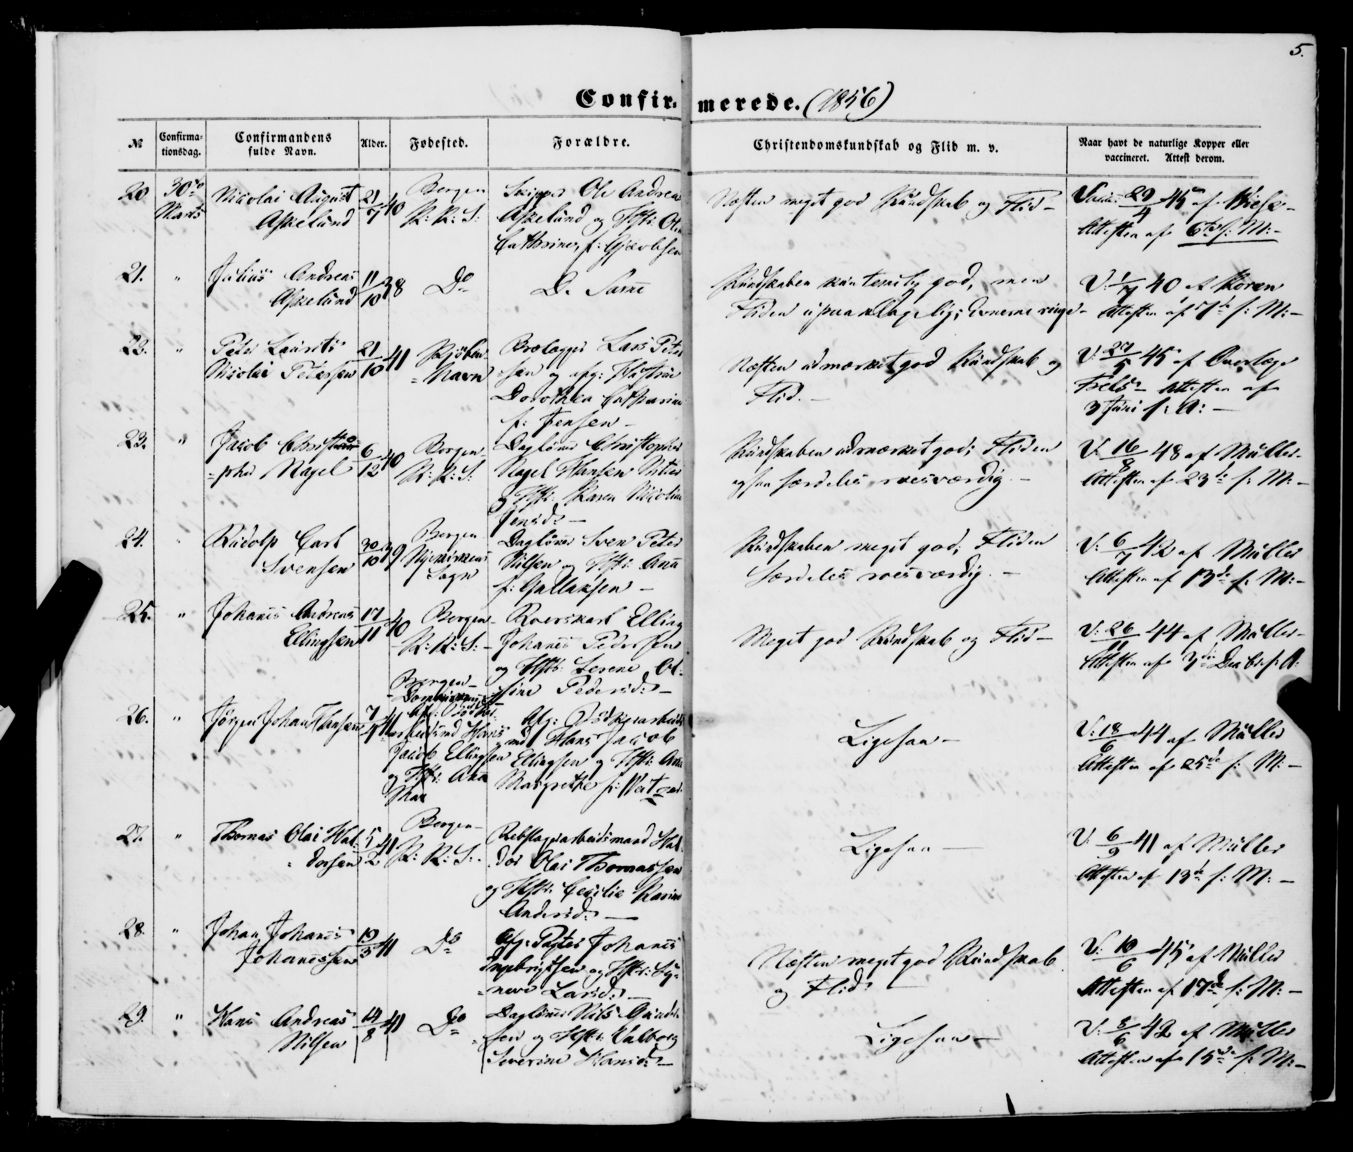 5.
Confirmerede. (1856)
№ Confirmationsdag. Confirmandens fulde Navn. Alder. Fødested. Forældre. Christendomskundskab og Flid m. v. Naar havt de naturlige Kopper eller vaccineret. Attest derom.
20. 30te Marts
Nicolai August
Askelund
21/7 40
Bergen
K: K: S:
Skipper Ole Andreas
Askelund og Hst: 
Cathrine f: Jacobsen
Næsten meget god Kundskab og Flid –
29/4 45 af Wiese –
Attesten af 6te f: M: –
21. "
Julius Andreas
Askelund
11/10 38
Do
Do Same
Kundskaben kun temlig god, men
Fliden upaaklagelig; Evnerne ringe –
V: 1/7 40 af Koren
Attesten af 7de f: M: –
22. "
Peter Laurits
Nicolai Petersen
21/10 41
Kjøbenhavn
Lars Petersen
og afg: Hustrue
Dorothea Catharina
f: Jensen –
Næsten udmærket god Kundskab og
Flid. –
V: 27/5 45 af Overlæge
Attesten af
3 Juni f: A: –
23. "
Jacob Christopher Nagel
6/12 40
Bergen
K: K: S:
Daglønner Christopher
Nagel Hansen
og Hst: Karen Nicoline
Jensd: –
Kundskaben udmærket god; Fliden
ogsaa særdeles roesværdig. –
V: 16/8 48 af Müller –
Attesten af 23de f: M: –
24. "
Rudolp Carl
Svensen
30/10 39
Bergen
Nykirkens
Sogn
Daglønner Sven Peter
Nilsen og Hst: Ana
f: Gullaksen –
Kundskaben meget god; Fliden
særdeles roesværdig. –
V: 6/7 42 af Müller
Attesten af 13de f: M: –
25. "
Johanes Andreas
Ellingsen
17/11 40
Bergen –
K: K: S: –
Roerskarl Elling
Johanes Pedersen
og Hst: Serene Olsine
Pedersd: –
Meget god Kundskab og Flid –
V: 26/11 44 af Müller –
Attesten af 3die Decbr f: A:
26. "
Jørgen Johan Hansen
7/9 41
Bergen –
Hans
Jacob Ellingsen
og Hst: Ana
Mar
Afg:
Hans Jacob
Ellingsen og Hst: Ana
Margrethe f:
Ligesaa –
V: 18/6 44 af Müller
Attesten af 25de f: M: –
27. "
Thomas Olai Haldorsen
5/2 41
Bergen –
K: K: S: –
Rebslagerarbeidsmand Haldor
Olai Thomassen
og Hst: Cecilie Karine
Andersd: –
Ligesaa –
V: 6/9 41 af Müller
Attesten af 13de f: M: –
28. "
Johan Johanes
Johannessen
19/3 41
Do
Afg: Johanes
Ingebrigtsen og Hst:
Larsd: –
Næsten meget god Kundskab
og Flid –
V: 10/6 45 af Müller
Attesten af 17de f: M: –
29. "
Hans Andreas
Nilsen
14/8 41
Do
Daglønner Nils
og Hst: Valborg
Severine Hansd: –
Ligesaa –
V: 8/6 42 af Müller
Attesten af 15de f: M: –